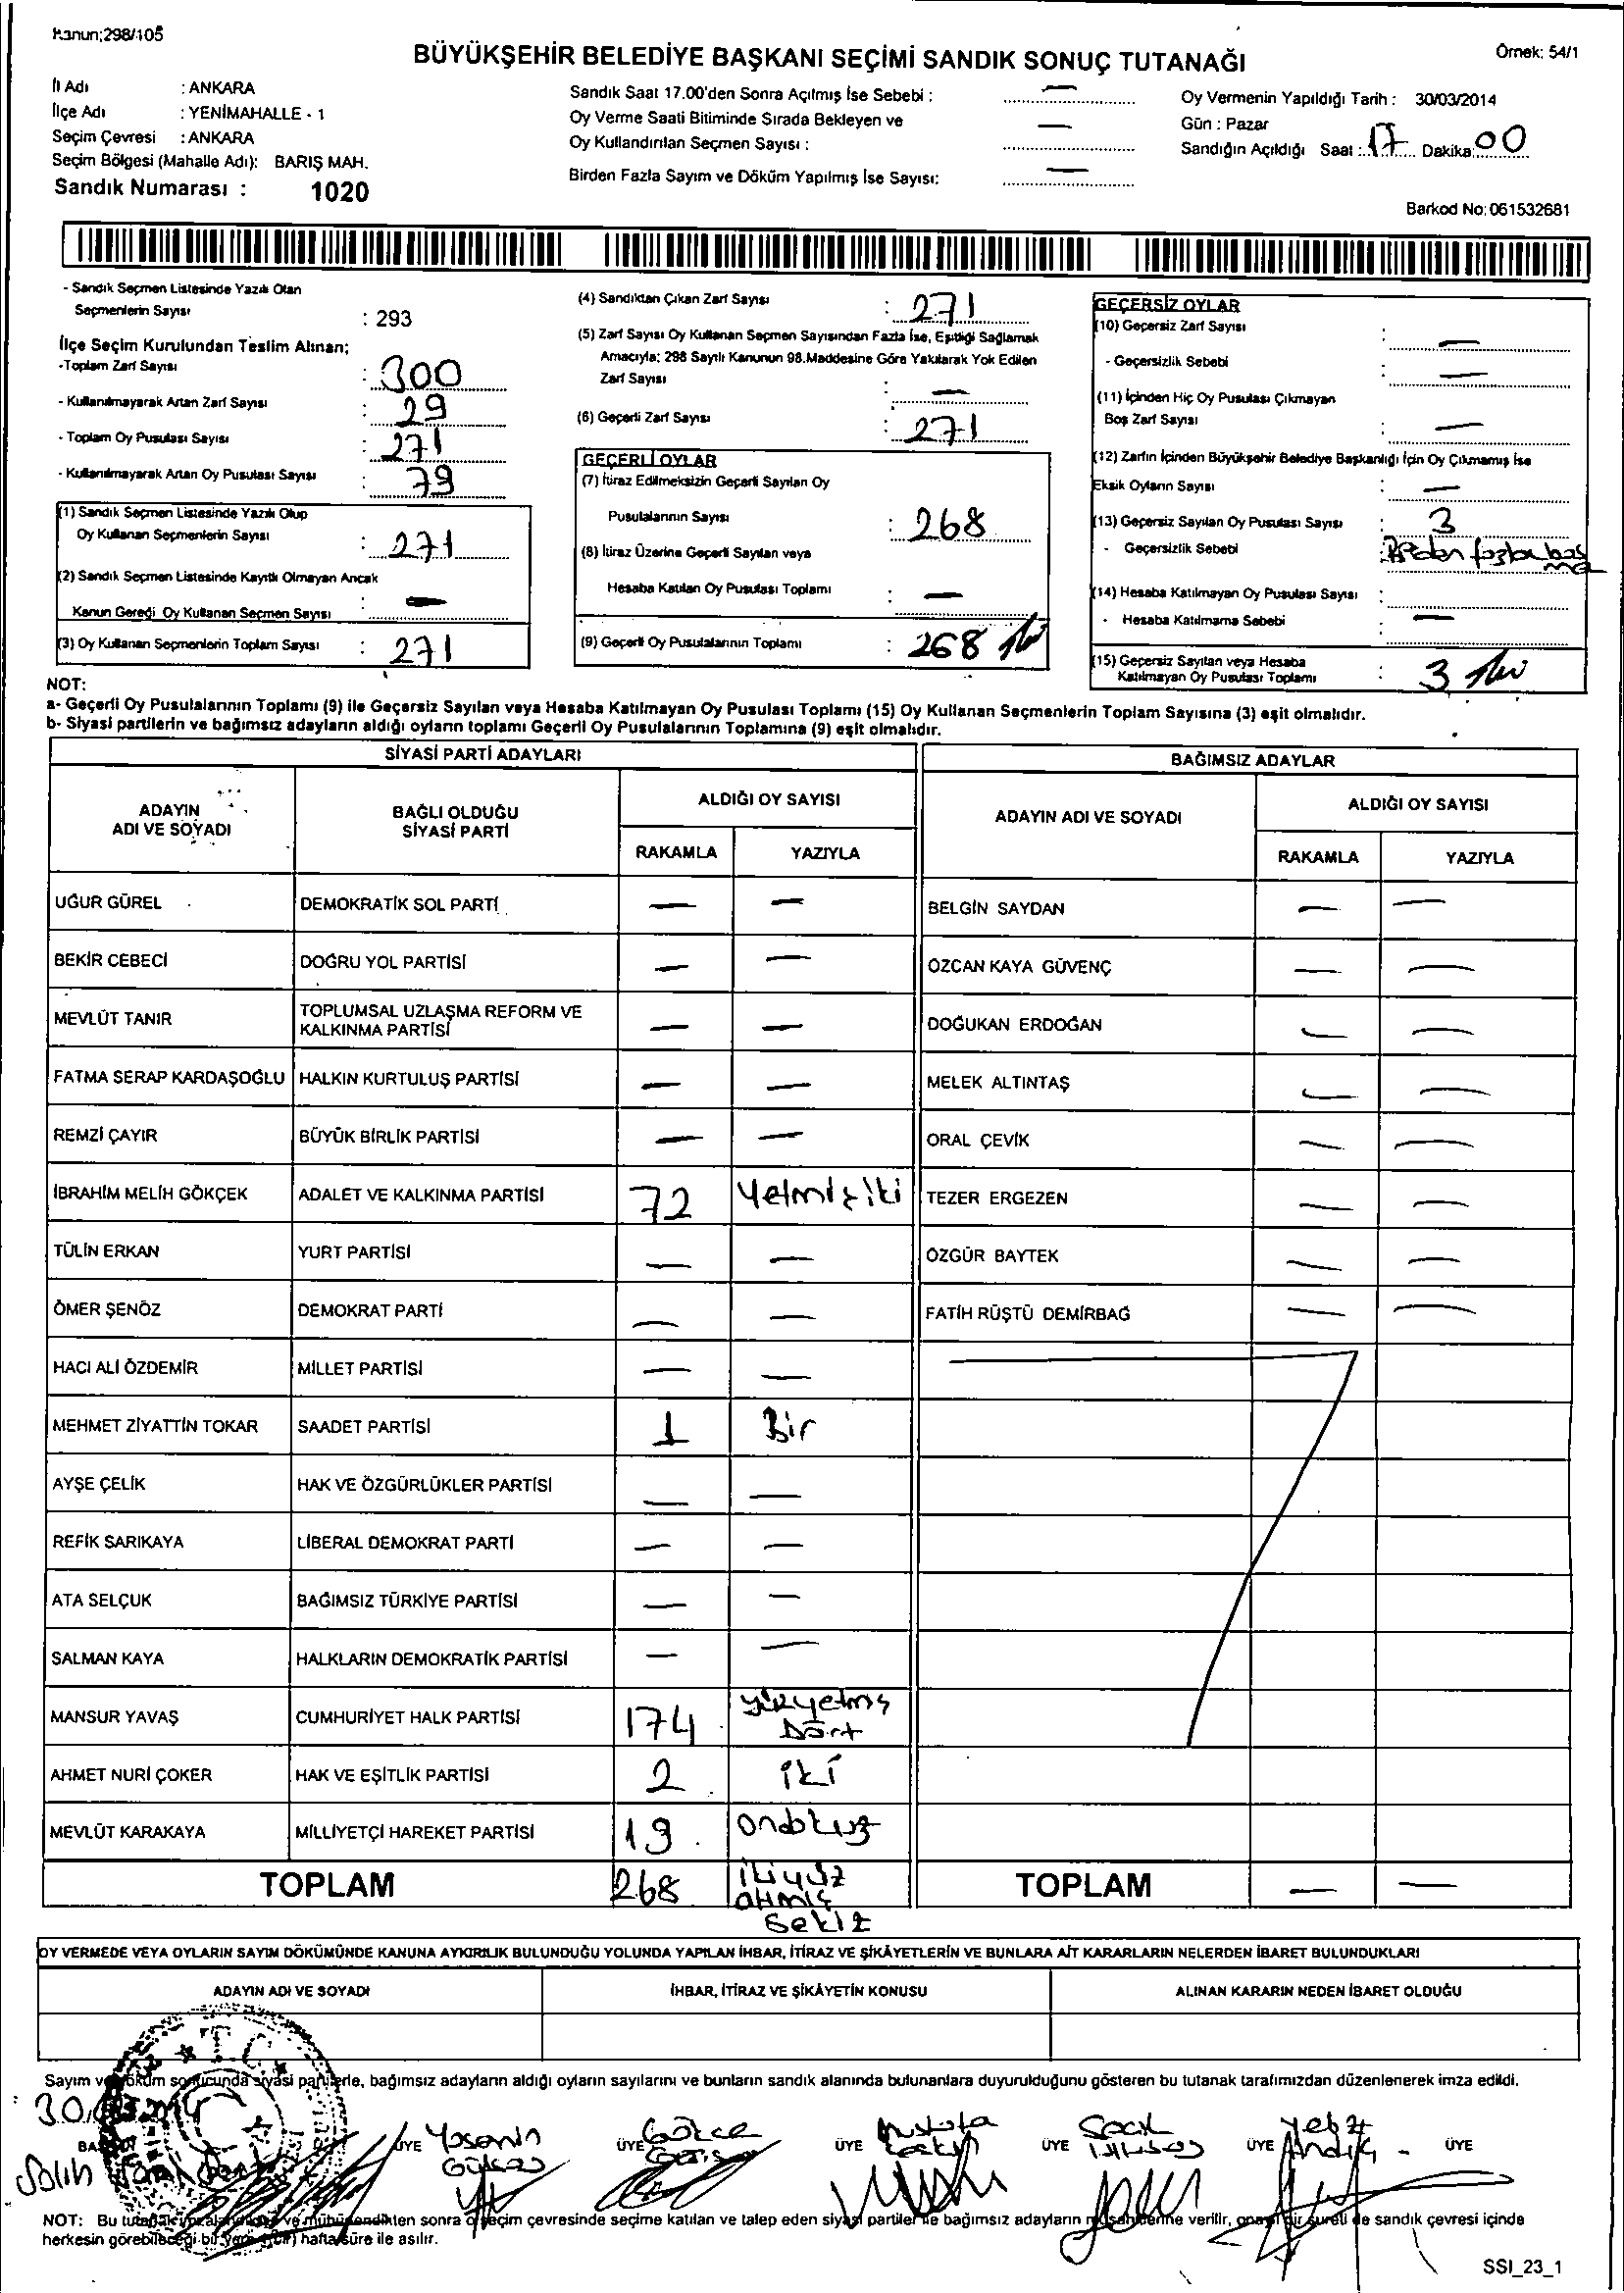 Kanun;298/105
BÜYÜKŞEHİR BELEDİYE BAŞKANI SEÇİMİ SANDIK SONUÇ TUTANAĞI
Örnek: 54/1
İl Adı : ANKARA
İlçe Adı : YENİMAHALLE - 1
Seçim Çevresi : ANKARA
Seçim Bölgesi (Mahalle Adı): BARIŞ MAH.
Sandık Numarası : 1020
Sandık Saat 17.00'den Sonra Açılmış İse Sebebi : —
Oy Verme Saati Bitiminde Sırada Bekleyen ve
Oy Kullandırılan Seçmen Sayısı : —
Birden Fazla Sayım ve Döküm Yapılmış İse Sayısı: —
Oy Vermenin Yapıldığı Tarih : 30/03/2014
Gün : Pazar
Sandığın Açıldığı Saat : 17 Dakika: 00
Barkod No: 061532681
- Sandık Seçmen Listesinde Yazılı Olan
Seçmenlerin Sayısı : 293
İlçe Seçim Kurulundan Teslim Alınan;
-Toplam Zarf Sayısı : 300
- Kullanılmayarak Artan Zarf Sayısı : 29
- Toplam Oy Pusulası Sayısı : 271
- Kullanılmayarak Artan Oy Pusulası Sayısı : 79
(1) Sandık Seçmen Listesinde Yazılı Olup
Oy Kullanan Seçmenlerin Sayısı : 271
(2) Sandık Seçmen Listesinde Kayıtlı Olmayan Ancak
Kanun Gereği Oy Kullanan Seçmen Sayısı : —
(3) Oy Kullanan Seçmenlerin Toplam Sayısı : 271
(4) Sandıktan Çıkan Zarf Sayısı : 271
(5) Zarf Sayısı Oy Kullanan Seçmen Sayısından Fazla İse, Eşitliği Sağlamak
Amacıyla; 298 Sayılı Kanunun 98.Maddesine Göre Yakılarak Yok Edilen
Zarf Sayısı : —
(6) Geçerli Zarf Sayısı : 271
GEÇERLİ OYLAR
(7) İtiraz Edilmeksizin Geçerli Sayılan Oy
Pusulalarının Sayısı : 268
(8) İtiraz Üzerine Geçerli Sayılan veya
Hesaba Katılan Oy Pusulası Toplamı : —
(9) Geçerli Oy Pusulalarının Toplamı : 268
GEÇERSİZ OYLAR
(10) Geçersiz Zarf Sayısı : —
- Geçersizlik Sebebi : —
(11) İçinden Hiç Oy Pusulası Çıkmayan
Boş Zarf Sayısı : —
(12) Zarfın İçinden Büyükşehir Belediye Başkanlığı İçin Oy Çıkmamış İse
Eksik Oyların Sayısı : —
(13) Geçersiz Sayılan Oy Pusulası Sayısı : 3
- Geçersizlik Sebebi : fazla bas
ma
(14) Hesaba Katılmayan Oy Pusulası Sayısı :
- Hesaba Katılmama Sebebi —
(15) Geçersiz Sayılan veya Hesaba
Katılmayan Oy Pusulası Toplamı : 3
NOT:
a- Geçerli Oy Pusulalarının Toplamı (9) ile Geçersiz Sayılan veya Hesaba Katılmayan Oy Pusulası Toplamı (15) Oy Kullanan Seçmenlerin Toplam Sayısına (3) eşit olmalıdır.
b- Siyasi partilerin ve bağımsız adayların aldığı oyların toplamı Geçerli Oy Pusulalarının Toplamına (9) eşit olmalıdır.
SİYASİ PARTİ ADAYLARI
ADAYIN
ADI VE SOYADI
BAĞLI OLDUĞU
SİYASİ PARTİ
ALDIĞI OY SAYISI
RAKAMLA YAZIYLA
UĞUR GÜREL DEMOKRATİK SOL PARTİ — —
BEKİR CEBECİ DOĞRU YOL PARTİSİ — —
MEVLÜT TANIR TOPLUMSAL UZLAŞMA REFORM VE
KALKINMA PARTİSİ — —
FATMA SERAP KARDAŞOĞLU HALKIN KURTULUŞ PARTİSİ — —
REMZİ ÇAYIR BÜYÜK BİRLİK PARTİSİ — —
İBRAHİM MELİH GÖKÇEK ADALET VE KALKINMA PARTİSİ 72 Yetmişiki
TÜLİN ERKAN YURT PARTİSİ — —
ÖMER ŞENÖZ DEMOKRAT PARTİ — —
HACI ALİ ÖZDEMİR MİLLET PARTİSİ — —
MEHMET ZİYATTİN TOKAR SAADET PARTİSİ 1 Bir
AYŞE ÇELİK HAK VE ÖZGÜRLÜKLER PARTİSİ — —
REFİK SARIKAYA LİBERAL DEMOKRAT PARTİ — —
ATA SELÇUK BAĞIMSIZ TÜRKİYE PARTİSİ — —
SALMAN KAYA HALKLARIN DEMOKRATİK PARTİSİ — —
MANSUR YAVAŞ CUMHURİYET HALK PARTİSİ 174 yüzyetmiş
Dört
AHMET NURİ ÇOKER HAK VE EŞİTLİK PARTİSİ 2 iki
MEVLÜT KARAKAYA MİLLİYETÇİ HAREKET PARTİSİ 19 ondokuz
TOPLAM 268 ikiyüz
altmış
sekiz
BAĞIMSIZ ADAYLAR
ADAYIN ADI VE SOYADI
ALDIĞI OY SAYISI
RAKAMLA YAZIYLA
BELGİN SAYDAN — —
ÖZCAN KAYA GÜVENÇ — —
DOĞUKAN ERDOĞAN — —
MELEK ALTINTAŞ — —
ORAL ÇEVİK — —
TEZER ERGEZEN — —
ÖZGÜR BAYTEK — —
FATİH RÜŞTÜ DEMİRBAĞ — —
TOPLAM — —
OY VERMEDE VEYA OYLARIN SAYIM DÖKÜMÜNDE KANUNA AYKIRILIK BULUNDUĞU YOLUNDA YAPILAN İHBAR, İTİRAZ VE ŞİKÂYETLERİN VE BUNLARA AİT KARARLARIN NELERDEN İBARET BULUNDUKLARI
ADAYIN ADI VE SOYADI İHBAR, İTİRAZ VE ŞİKÂYETİN KONUSU ALINAN KARARIN NEDEN İBARET OLDUĞU
T.C.
Sayım ve döküm sonucunda siyasi partilerle, bağımsız adayların aldığı oyların sayılarını ve bunların sandık alanında bulunanlara duyurulduğunu gösteren bu tutanak tarafımızdan düzenlenerek imza edildi.
BAŞKAN ÜYE ÜYE ÜYE ÜYE ÜYE ÜYE
Salih
Yasemin
Gökçe
Mustafa
NOT: Bu tutanak ve mühürlendikten sonra o seçim çevresinde seçime katılan ve talep eden siyasi partiler ile bağımsız adayların müşahitlerine verilir, onaylı bir sureti de sandık çevresi içinde
herkesin görebileceği bir yere (bir) hafta süre ile asılır.
SSI_23_1